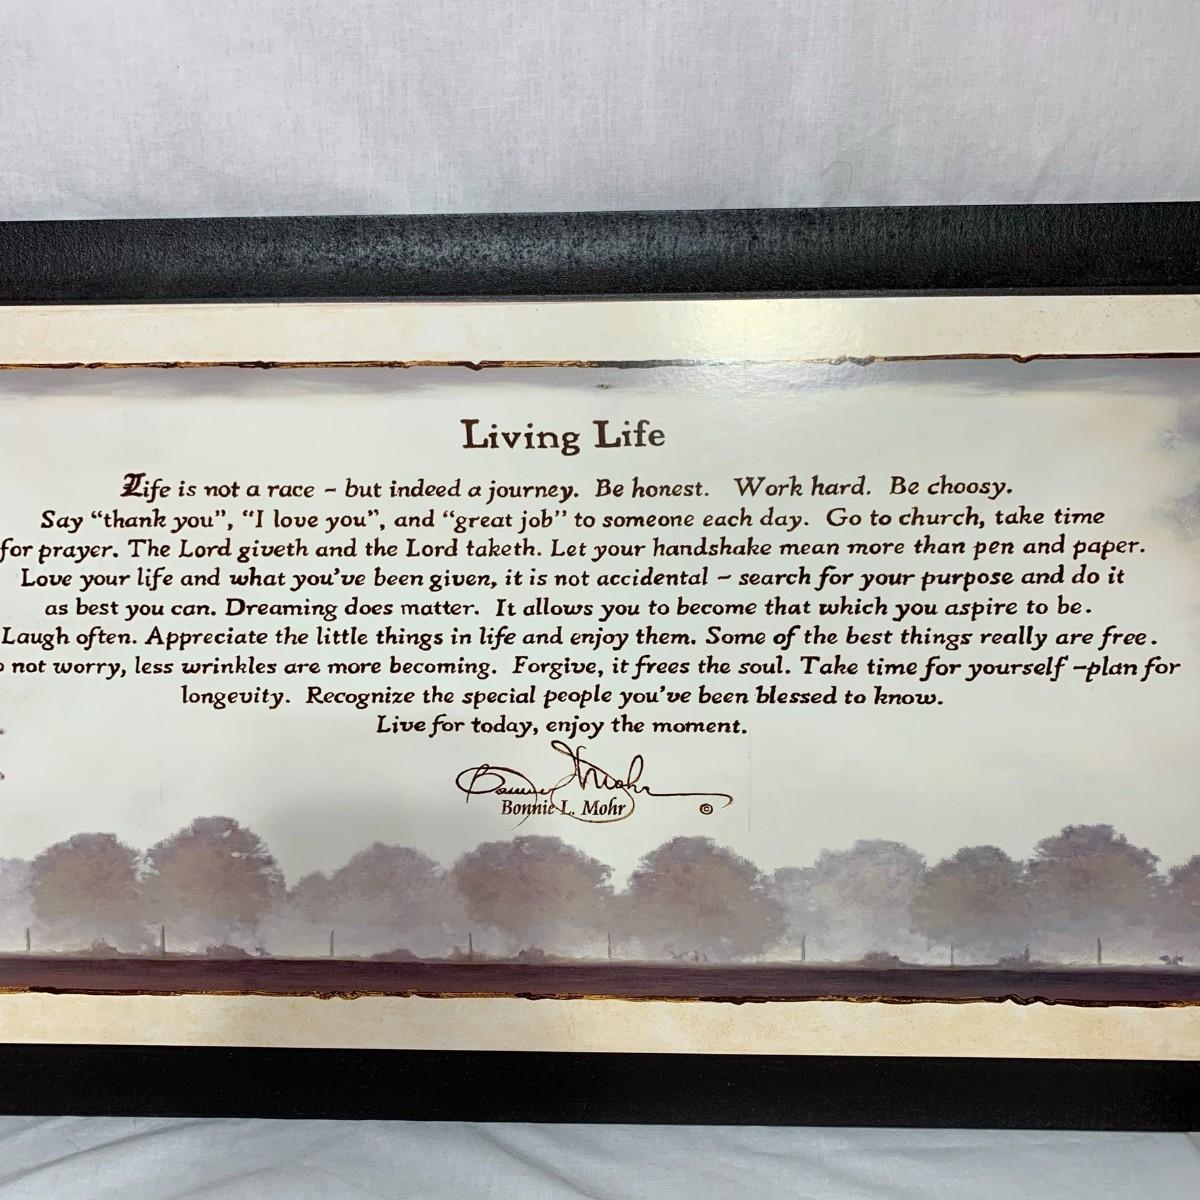 Living Life
Life is not a race ~ but indeed a journey. Be honest. Work hard. Be choosy.
Say "thank you", "I love you", and "great job" to someone each day. Go to church, take time
for prayer. The Lord giveth and the Lord taketh. Let your handshake mean more than pen and paper.
Love your life and what you've been given, it is not accidental ~ search for your purpose and do it
as best you can. Dreaming does matter. It allows you to become that which you aspire to be.
Laugh often. Appreciate the little things in life and enjoy them. Some of the best things really are free.
not worry, less wrinkles are more becoming. Forgive, it frees the soul. Take time for yourself ~plan for
longevity. Recognize the special people you've been blessed to know.
Live for today, enjoy the moment.
Bonnie L. Mohr
Bonnie L. Mohr ©